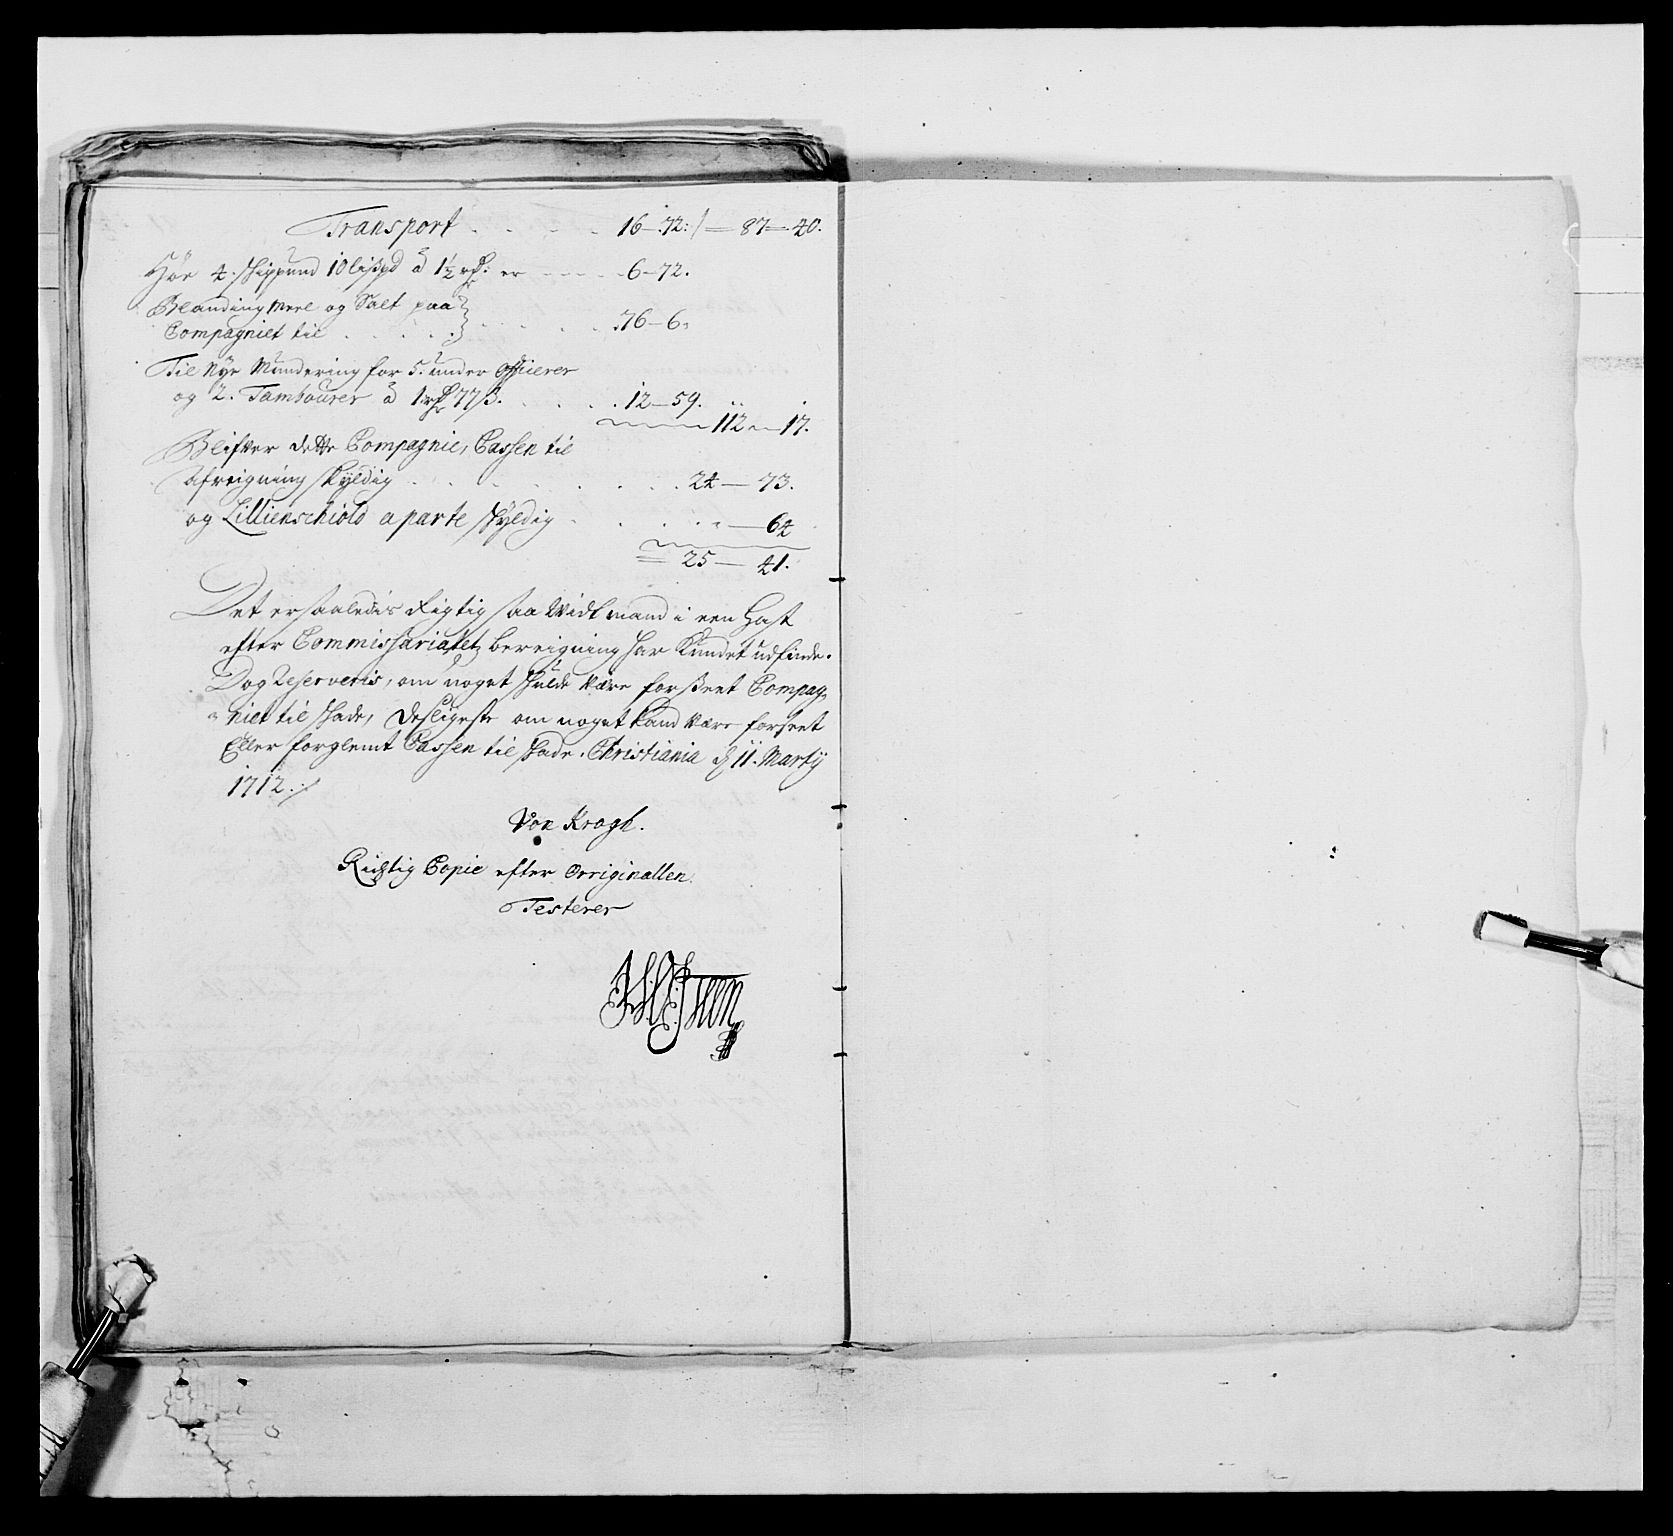 Transport . . . . 16 - 72: / — 87 — 40.
Høe 4. skippund 10 lispd à 1½ rdr: er - - - - 6 - 72.
Blanding Meel og Salt paa
Compagniet til . . . . . . . . . 76 - 6.
Til Nye Mundering for 5. under Officerer
og 2. Tambourer à 1 rdr 77 β. . . . . 12 - 59.
112 — 17.
Blifver dette Compagnie, Cassen til
afreigning skyldig . . . . . . . 24 — 73.
og Lillienschiold a parte skyldig . . . . . — 64
= 25 — 41.
Det er saaledis Rigtig saa Vidt mand i een Hast
efter Commissariatetz bereigning har Kundet udfinde.
Dog Reserveris, om noget skulde være forseet Compag-
niet til skade, desligeste om noget kand være forseet
Eller forglemt Cassen til skade. Christiania d 11. Martij
1712 ./.
Von Krogh.
Rigtig Copie efter Orriginallen.
Testerer